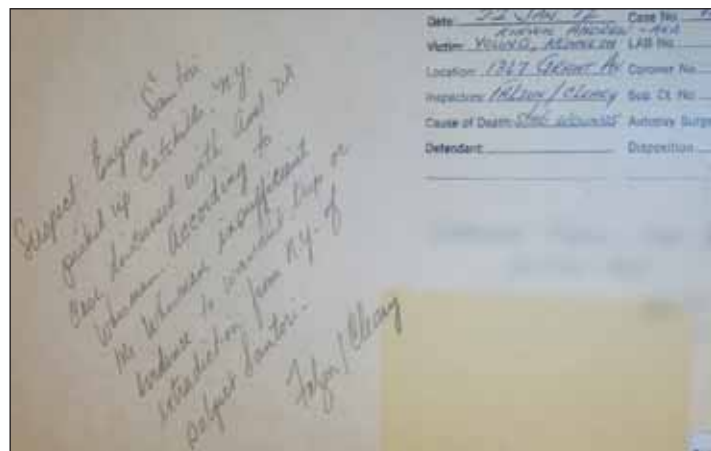 Suspect Eugene Santori
picked up Catskills, N.Y.
Case discussed with Asst DA
Whisman. According to
Mr Whisman insufficient
evidence to warrant trip or
extradiction from N.Y. of
subject Santori.
Falzon/Cleary
Date: 22 JAN Case No.
ANDREW - AKA
Victim: YOUNG, LAB No.
Location: 1367 GRANT AV Coroner No.
Inspectors: FALZON/CLEARY Sup. Ct. No.
Cause of Death: STAB WOUNDS Autopsy Surge
Defendant: Disposition